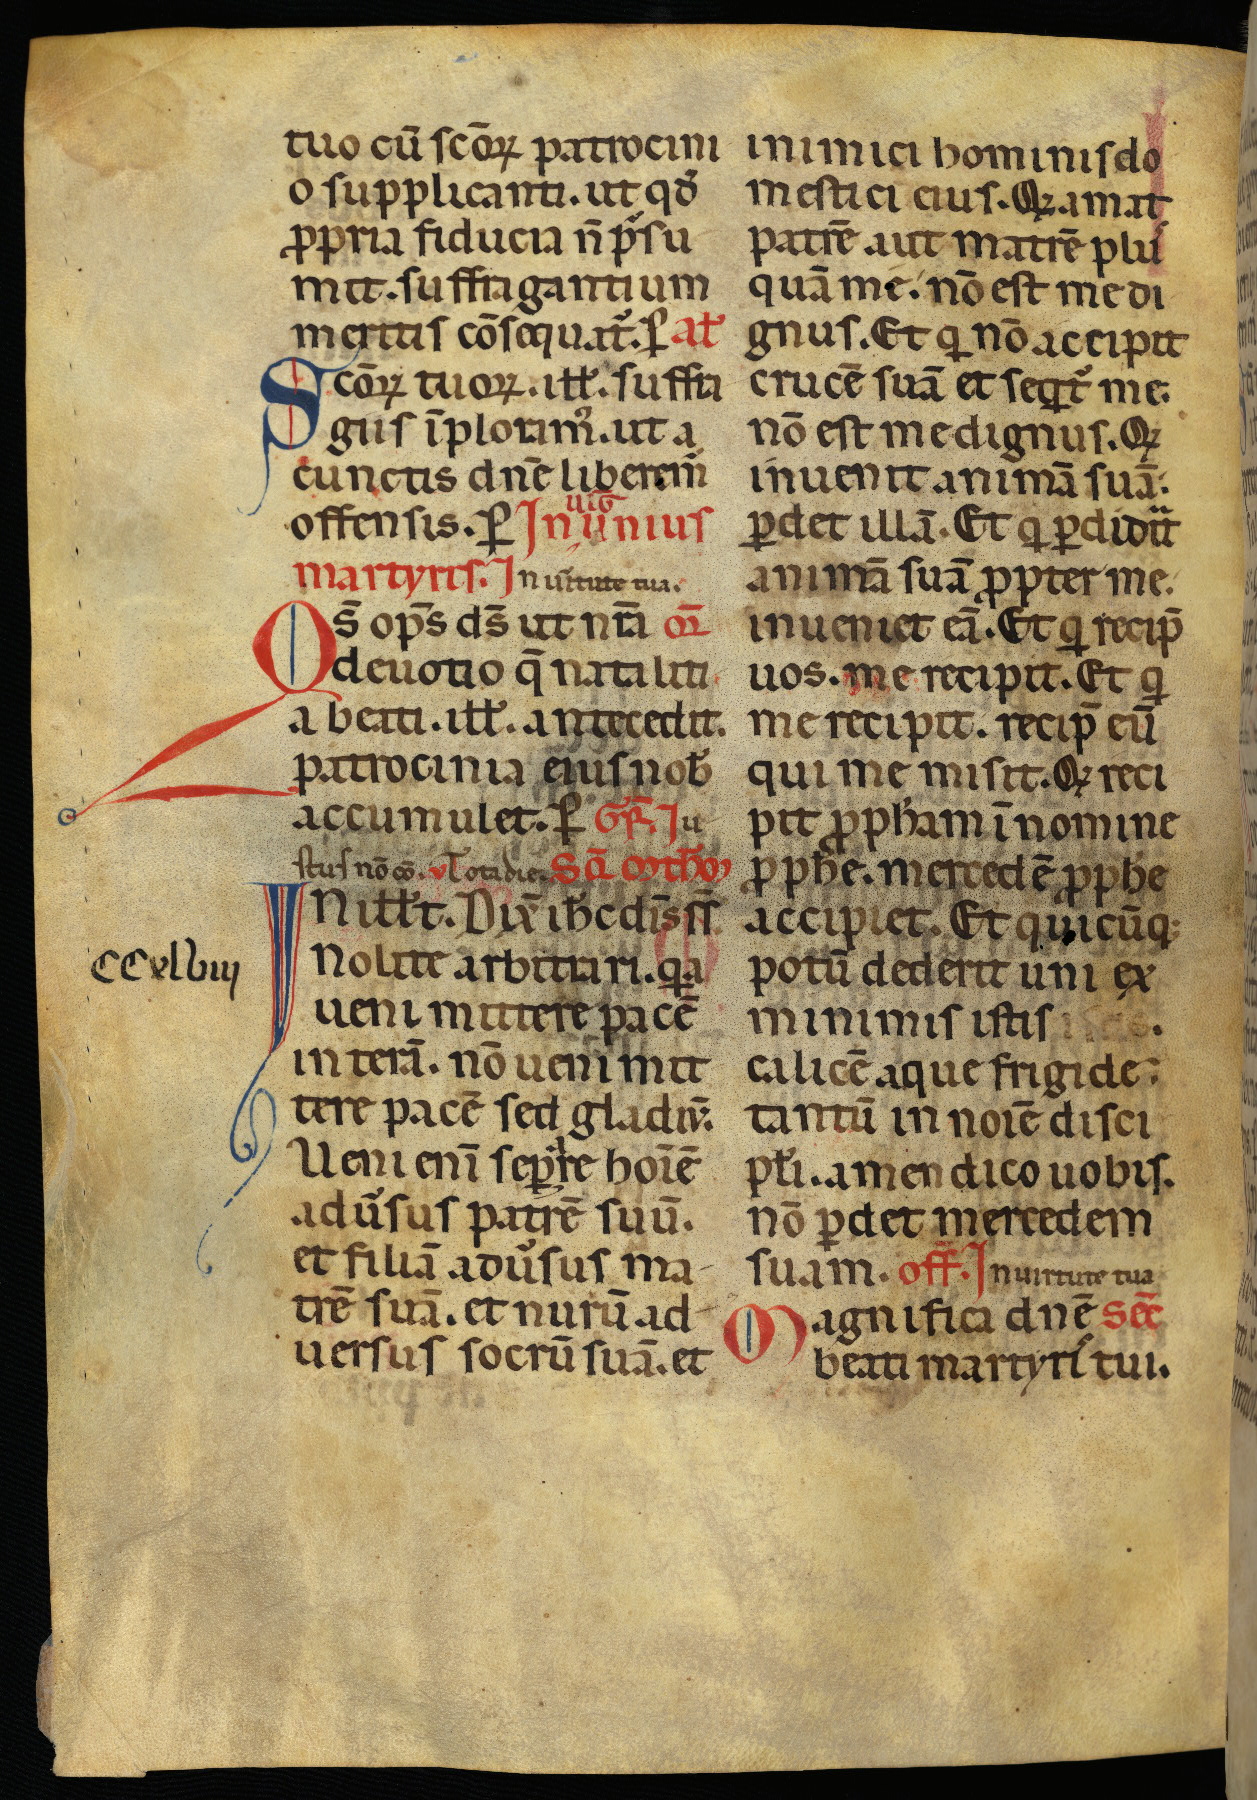 tuo cū scōꝝ patrocini
o supplicanti. ut qđ
ꝓpria fiducia n̄ p̄su
mit. suffragantium
meritis cōsequat᷑. ꝑ al̄
Scōꝝ tuoꝝ. ill̄. suffra
giis īploram᷒. ut a
cunctis dn̄e liberem᷒
offensis. ꝑ In uiḡ unius
martyris. In uirtute tua.
Qs̄ op̄s ds̄ ut nr̄a or̄
deuotio q̄ nataliti
a beati. ill̄. antecedit.
patrocinia eius nob̄
accumulet. ꝑ Gr̄. Iu
stus nō cō. v Tota die. Scd̄ matħm
IN ill̄ t. Dix̄ ih̄c discīs
Nolite arbitrari. qꝛa
ueni mittere pacē
in terā. nō ueni mit
tere pacē sed gladiū.
Ueni enī seꝑare hoīē
aduſ̉sus patrē suū.
et filiā adu̓sus ma
trē suā. et nurū ad
uersus socrū suā. et
CCxlviij
inimici hominis do
mestici eius. Qꝛ amat
patrē aut matrē plus
quā me. nō est me di
gnus. Et qi nō accipit
crucē suā et seqt᷑ me.
nō est me dignus. Qꝛ
inuenit animā suā.
ꝑdet illā. Et qi ꝑdidit
animā suā ꝓpter me.
inueniet eā. Et qi recip̄
uos. me recipit. Et qi
me recipit. recip̄ eū
qui me misit. Qꝛ reci
pit ꝓpħam ī nomine
ꝓpħe. mercedē ꝓpħe
accipiet. Et quicūqꝫ
potū dederit uni ex
minimis istis.
calicē aque frigide
tantū in noīe disci
pl̄i. amen dico uobis.
nō ꝑdet mercedem
suam. off̄. In uirtute tua
Magnifica dn̄e sēc
beati martyri tui.